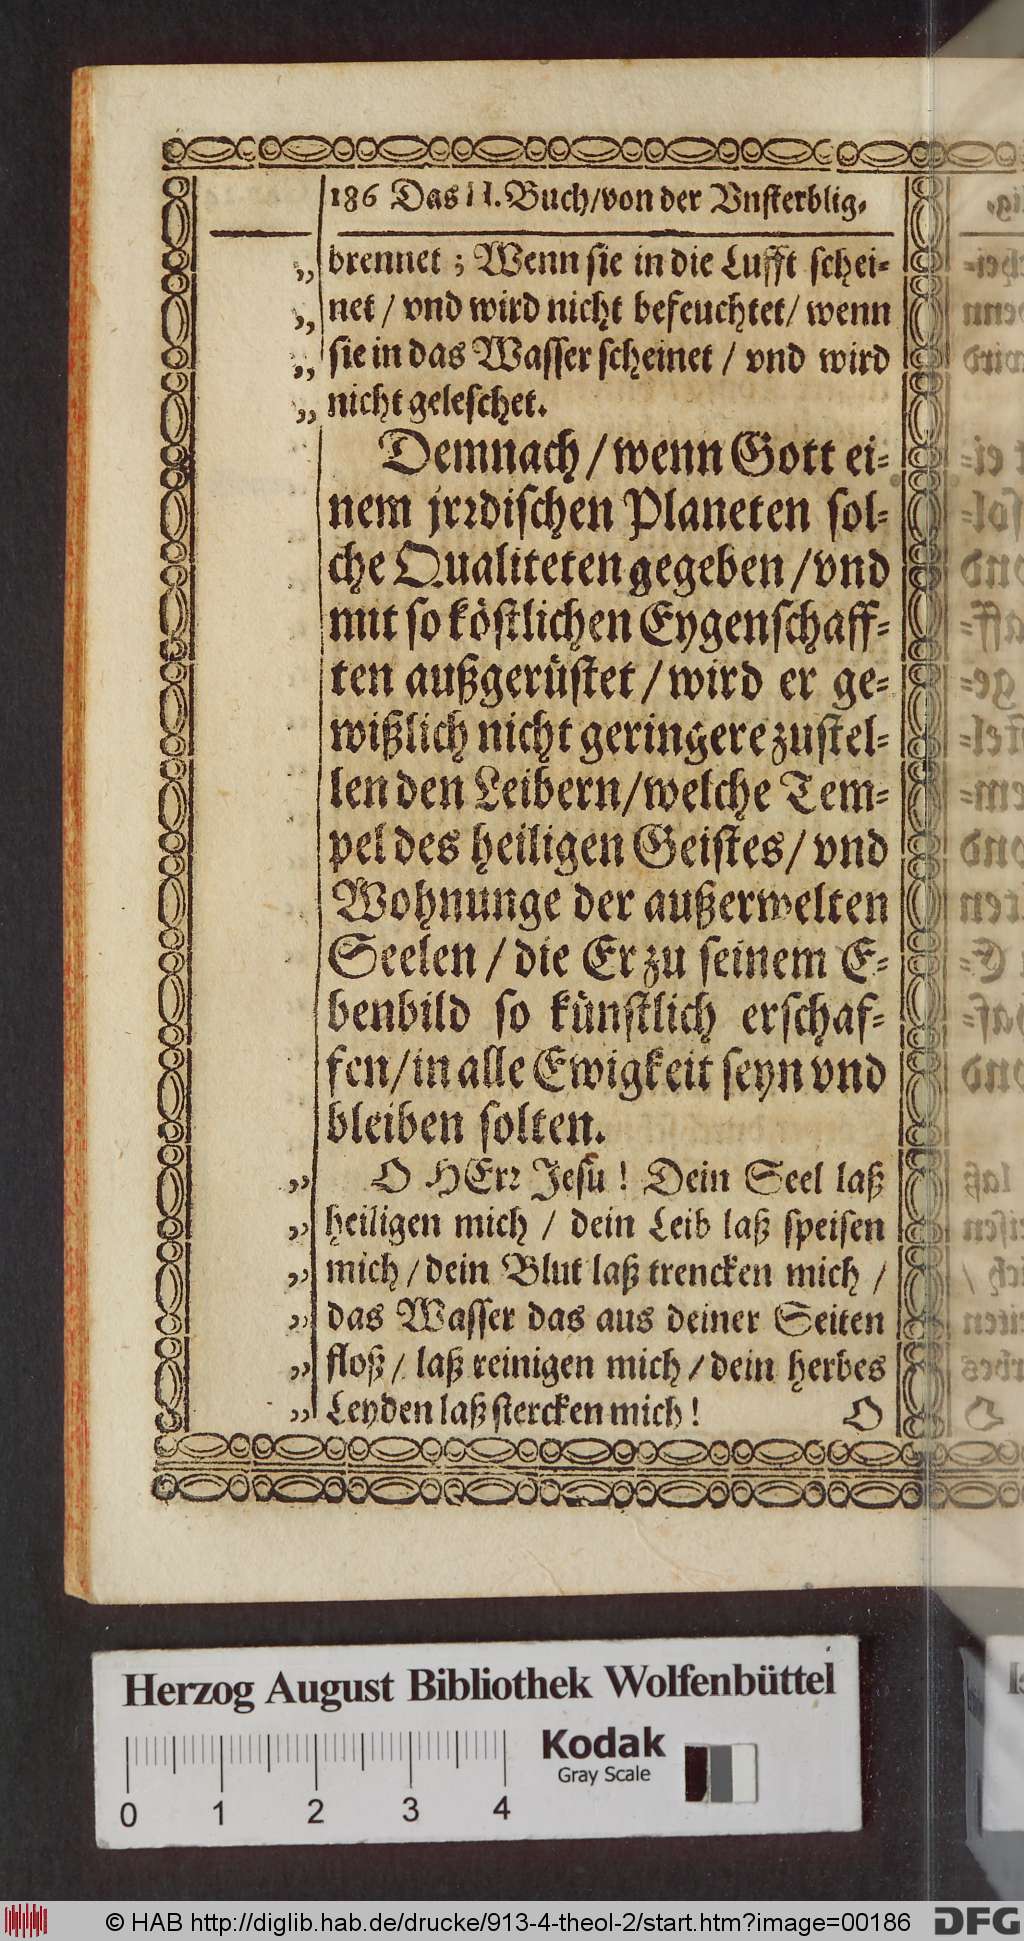 186 Das II. Buch/von der Vnsterblig-
„ brennet ; Wenn sie in die Lufft schei-
„ net / vnd wird nicht befeuchtet/ wenn
„ sie in das Wasser scheinet / vnd wird
„ nicht geleschet.
Demnach / wenn Gott ei-
nem jrꝛdischen Planeten sol-
che Qualiteten gegeben / vnd
mit so köstlichen Eygenschaff-
ten außgerüstet / wird er ge-
wißlich nicht geringere zustel-
len den Leibern/welche Tem-
pel des heiligen Geistes/ vnd
Wohnunge der außerwelten
Seelen / die Er zu seinem E-
benbild so künstlich erschaf-
fen/in alle Ewigkeit seyn vnd
bleiben solten.
„ O HErꝛ Jesu ! Dein Seel laß
„ heiligen mich / dein Leib laß speisen
„ mich / dein Blut laß trencken mich /
„ das Wasser das aus deiner Seiten
„ floß / laß reinigen mich / dein herbes
„ Leyden laß stercken mich !
O
Herzog August Bibliothek Wolfenbüttel
Kodak
Gray Scale
0 1 2 3 4
© HAB http://diglib.hab.de/drucke/913-4-theol-2/start.htm?image=00186
DFG